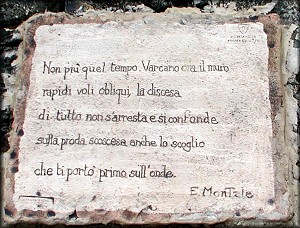 Non più quel tempo. Varcano ora il muro
rapidi voli obliqui, la discesa
di tutto non s'arresta e si confonde
sulla proda scoscesa anche lo scoglio
che ti portò primo sull'onde.
E. Montale